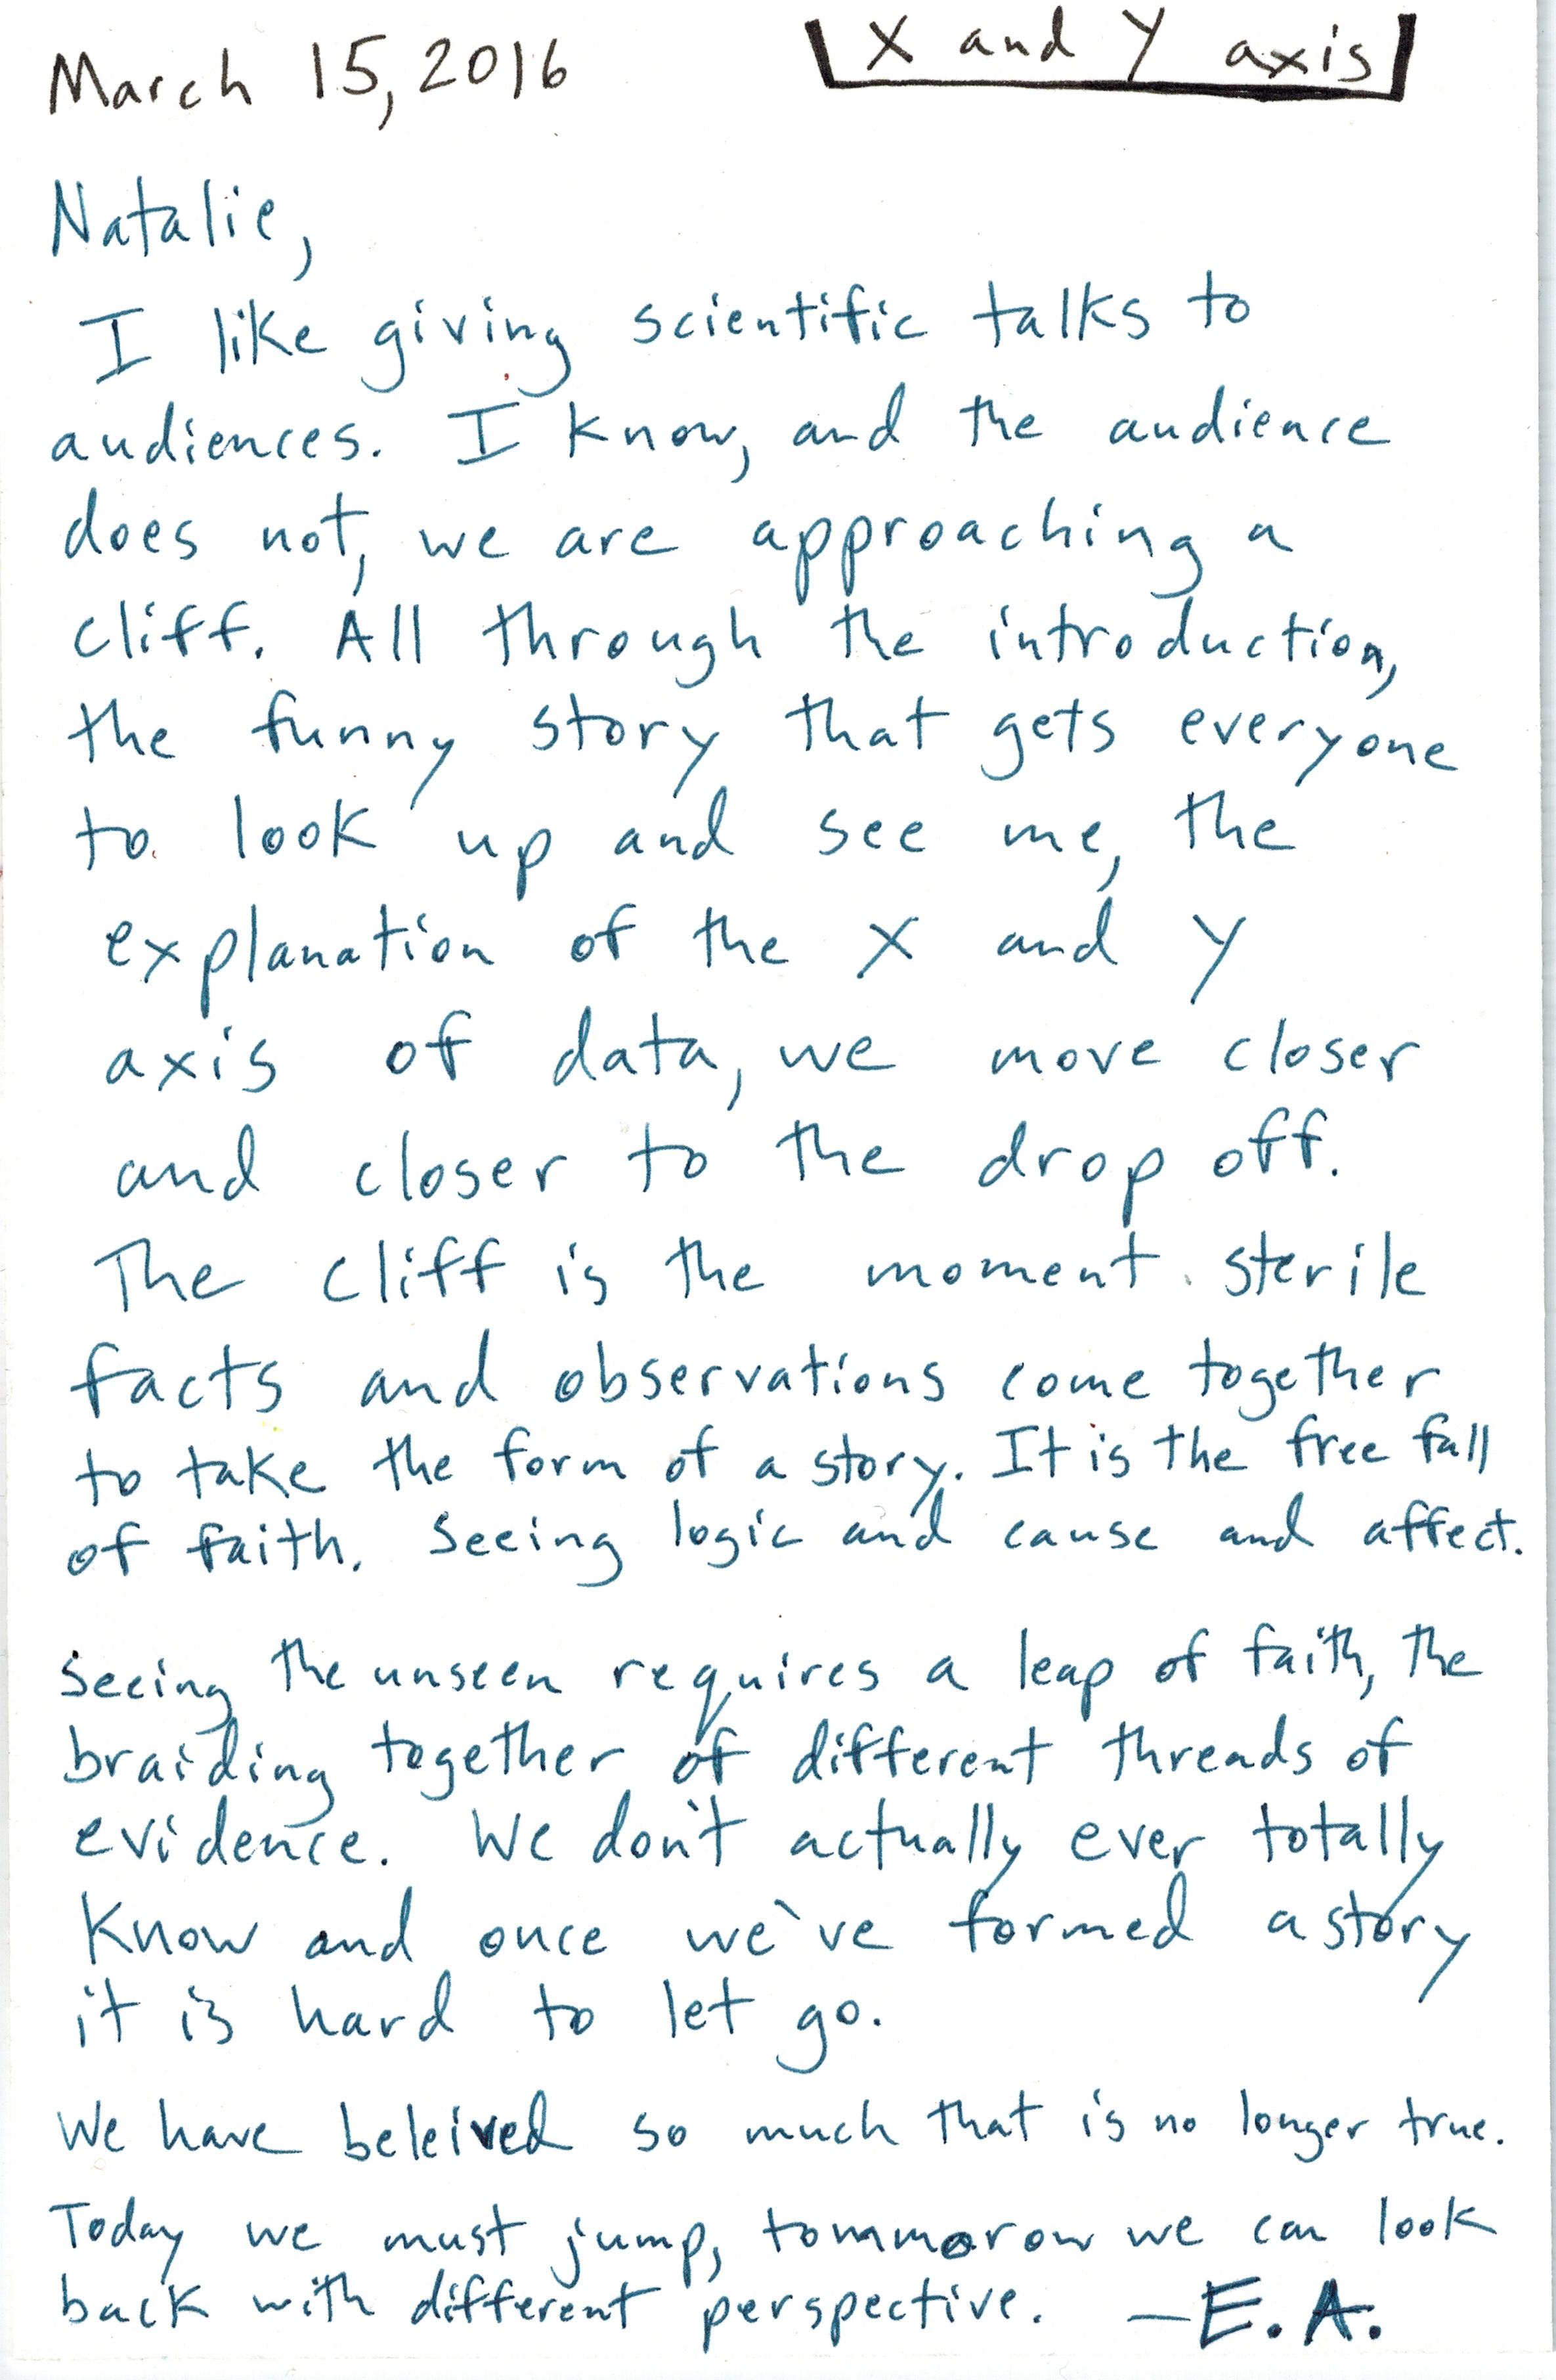 March 15, 2016
X and Y axis
Natalie,
I like giving scientific talks to
audiences. I know, and the audience
does not, we are approaching a
cliff. All through the introduction,
the funny story that gets everyone
to look up and see me, the
explanation of the X and Y
axis of data, we move closer
and closer to the drop off.
The cliff is the moment sterile
facts and observations come together
to take the form of a story. It is the free fall
of faith. Seeing logic and cause and affect.
Seeing the unseen requires a leap of faith, the
braiding together of different threads of
evidence. We don't actually ever totally
know and once we've formed a story
it is hard to let go.
We have beleived so much that is no longer true.
Today we must jump, tommorow we can look
back with different perspective. —E.A.